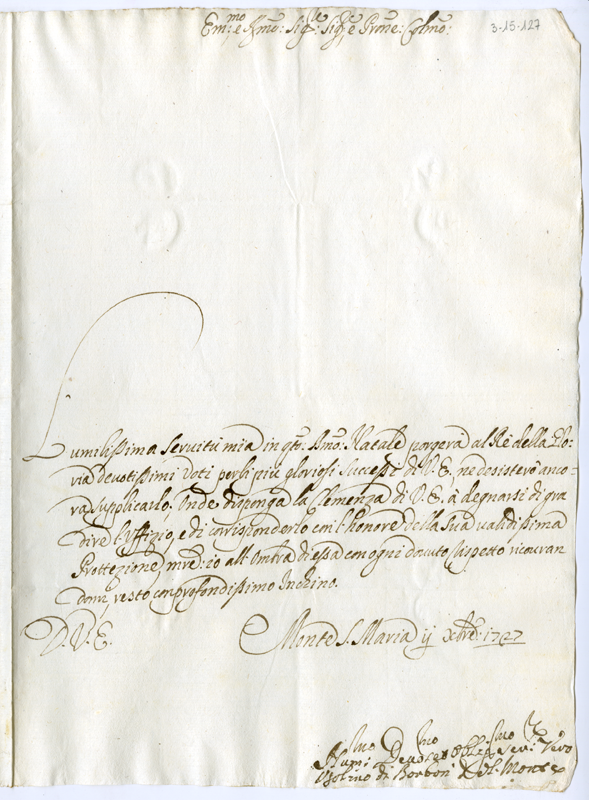 Em:mo e Rmo: Sig:re Sig:re e Prone: Colmo:
3-15-127
L'umilissima servitù mia in qto: Smo: Natale porgerà al Rè della Glo-
ria devotissimi Voti per li più gloriosi successi di V.E., ne desisterà anco-
ra supplicarlo, Onde disponga la Clemenza di V.E. à degnarsi di gra
dire l'Uffizio, e di corrisponderlo con l'honore della Sua validissima
Prottezione, mre: io all'Ombra di essa con ogni dovuto rispetto ricouran
domi, resto con profondissimo Inchino.
D. V. E.
Monte S. Maria ij Xbre: 1727
Humi:mo Devot:mo Obl:mo Ser: Vero
di Borbon del Monte